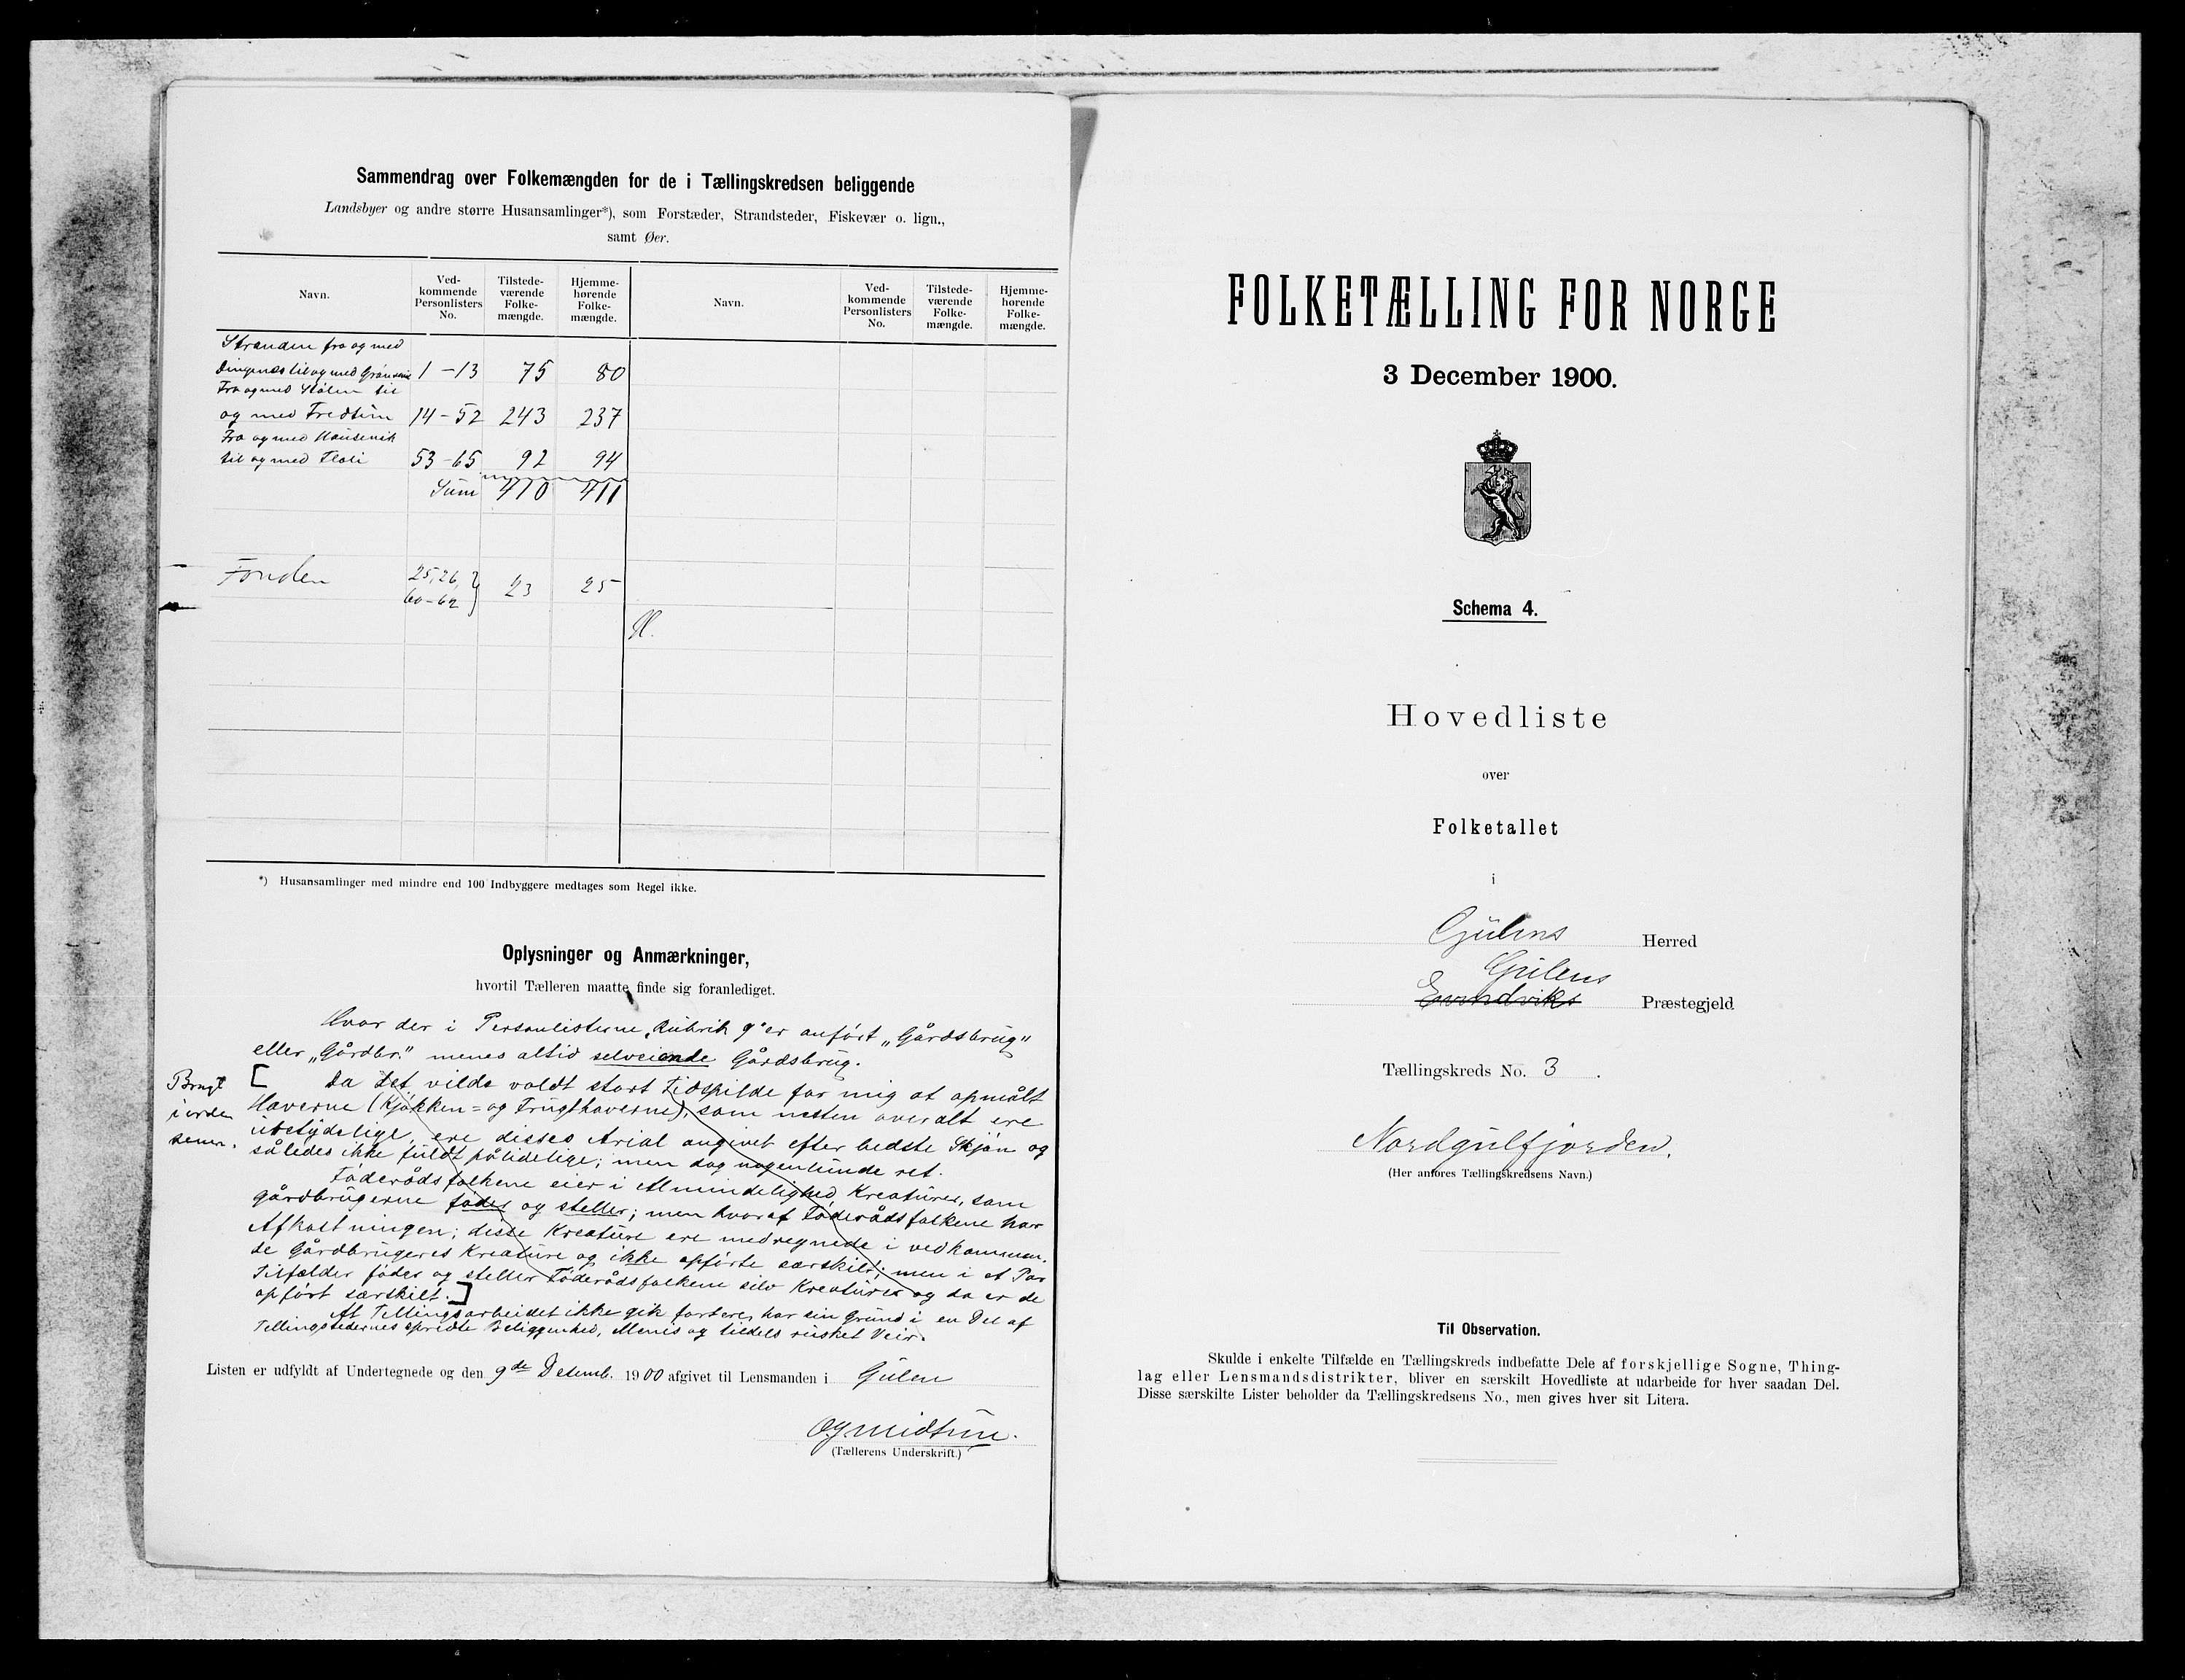 Sammendrag over Folkemængden for de i Tællingskredsen beliggende
Landsbyer og andre større Husansamlinger*), som Forstæder, Strandsteder, Fiskevær o. lign.,
samt Øer.
Navn. Ved-kommende Personlisters No. Tilstede-værende Folke-mængde. Hjemme-hørende Folke-mængde. Navn. Ved-kommende Personlisters No. Tilstede-værende Folke-mængde. Hjemme-hørende Folke-mængde.
Stranden fra og med
Dingenæs til og med 1-13 75 80
Fra og med Stølen til
og med Fredtun 14-52 243 237
Fra og med Hausenik
til og med Floli 53-65 92 94
Sum 410 411
Fonden 25, 26, 60-62 } 23 25
*) Husansamlinger med mindre end 100 Indbyggere medtages som Regel ikke.
Oplysninger og Anmærkninger,
hvortil Tælleren maatte finde sig foranlediget.
Hvor der i Personlisterne, Rubrik 9 er anført „Gårdsbrug"
eller „Gårdbr." menes altid selveiende Gårdsbrug.
[ Da det vilde voldt stort Tidspilde for mig at opmålt
Haverne (Kjøkken= og Frugthaverne), som nesten overalt ere
ubetydelige, ere disses Arial angivet efter bedste Skjøn og
således ikke fuldt pålidelige; men dog nogenlunde ret.
Føderådsfolkene eier i Almindelighed Kreaturer, som
gårdbrugerne føder og steller; men hvoraf Føderådsfolkene har
Afkastningen; disse Kreature ere medregnede i vedkommen-
de Gårdbrugeres Kreature og ikke opførte særskilt; men i et Par
Tilfælder føder og steller Føderådsfolkene selv Kreaturer og da er de
opført særskilt. ]
At Tellingsarbeidet ikke gik fortere, har sin Grund i en Del af
Tellingstedernes spredte Beliggenhed, Menis og tildels rusket Veir.
Brugt
i orden
Listen er udfyldt af Undertegnede og den 9de Desemb. 1900 afgivet til Lensmanden i Gulen
OgMidtun.
(Tællerens Underskrift.)
FOLKETÆLLING FOR NORGE
3 December 1900.
Schema 4.
Hovedliste
over
Folketallet
i
Gulens Herred
Gulens
Evindviks Præstegjeld
Tællingskreds No. 3 .
Nordgulfjorden.
(Her anføres Tællingskredsens Navn.)
Til Observation.
Skulde i enkelte Tilfælde en Tællingskreds indbefatte Dele af forskjellige Sogne, Thing-
lag eller Lensmandsdistrikter, bliver en særskilt Hovedliste at udarbeide for hver saadan Del.
Disse særskilte Lister beholder da Tællingskredsens No., men gives hver sit Litera.